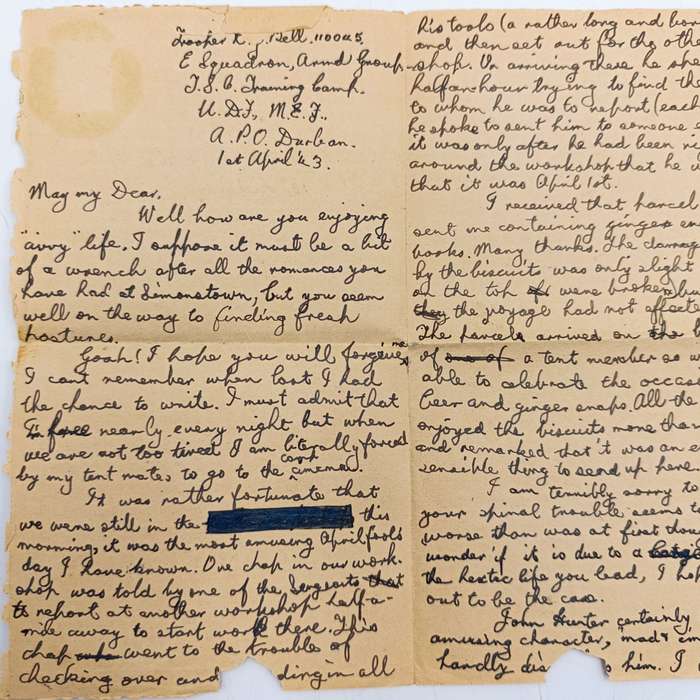 Trooper K. J. Bell. 110045.
E Squadron, Armd Group.
T.S.C. Training Camp.
U.D.F., M.E.F.,
A.P.O. Durban.
1st April '43.
May my Dear,
Well how are you enjoying
"civvy" life. I suppose it must be a bit
of a wrench after all the romances you
have had at Simonstown, but you seem
well on the way to finding fresh
pastures.
Gosh! I hope you will forgive me
I cant remember when last I had
the chance to write. I must admit that
nearly every night but when
we are not too tired I am literally forced
by my tent mates to go to the camp cinema.
It was rather fortunate that
we were still in the this
morning, it was the most amusing April fools
day I have known. One chap in our work-
shop was told by one of the Sergeants that
to report at another workshop half-a-
mile away to start work there. This
chap went to the trouble of
checking over and ding in all
his tools (a rather long and
and then set out for the othe
shop. On arriving there he
half an hour trying to find the
to whom he was to report (each
he spoke to sent him to someone
it was only after he had been
around the workshop that he
that it was April 1st.
I received that parcel
sent me containing ginger
books. Many thanks. The damage
by the biscuits was only slight
on the top were broken
the voyage had not affecte
The parcels arrived on
of a tent member so
able to celebrate the occas
beer and ginger snaps. All the
enjoyed the biscuits more than
and remarked that it was an
sensible thing to send up here.
I am terribly sorry to
your spinal trouble seems to
worse than was at first thou
wonder if it is due to a
the hectic life you lead, I hop
out to be the case.
John Hunter certainly
amusing character,
hardly dis s him. I